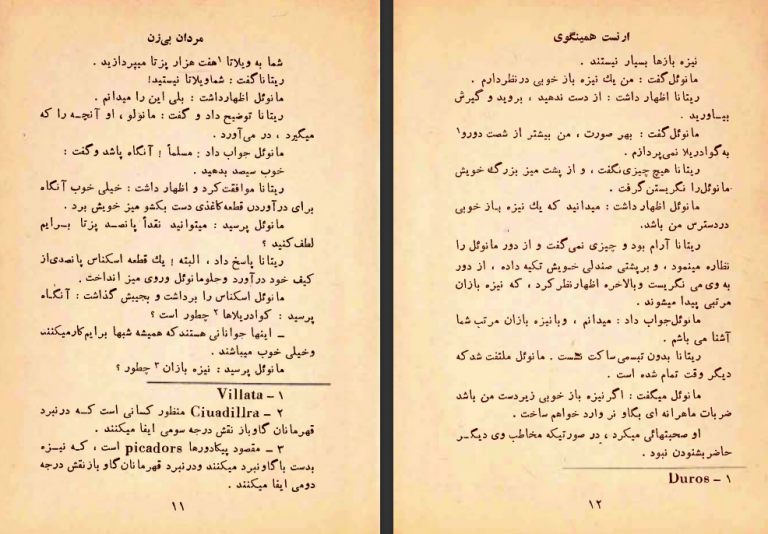 ارنست همینگوی
نیزه بازها بسیار نیستند .
مانوئل‌گفت : من یك نیزه باز خوبی درنظردارم .
ریتانا اظهار داشت : از دست ندهید ، بروید و گیرش
بیـاورید .
مانوئل‌گفت : بهر صورت ، من بیشتر از شصت دورو۱
به‌گوادریلا نمی‌پردازم .
ریتانا هیچ چیزی‌نگفت ، و از پشت میز بزرگ خویش
مانوئل‌را نگریستن‌گرفت .
مانوئل اظهار داشت : میدانید که یك نیزه بـاز خوبی
دردسترس من باشد.
ریتانا آرام بود و چیزی نمی‌گفت و از دور مانوئل را
نظاره مینمود ، و برپشتی صندلی خـویش تکیه داده ، از دور
به وی می نگریست وبالاخره اظهارنظرکرد ، که نیزه بازان
مرتبی پیدا میشوند .
مانوئل‌جواب داد : میدانم ، وبانیزه بازان مرتب شما
آشنا می باشم .
ریتانا بدون تبسمی‌ساکت نشست . مانوئل ملتفت شدکه
دیگر وقت تمام شده است .
مانوئل میگفت : اگرنیزه باز خوبی زیردست من باشد
ضربات ماهرانه ای بگاو نر وارد خواهم ساخت .
او صحبتهائی میکرد ، در صورتیکه مخاطب وی دیگـر
حاضر بشنودن نبود .
۱ – Duros
۱۲
مردان بی‌زن
شما به ویلاتا ۱هفت هزار پزتا میپردازید .
ریتاناگفت : شماویلاتا نیستید!
مانوئل اظهارداشت : بلی این را میدانم .
ریتانا توضیح داد و گفت : مانولو ، او آنچـه را که
میگیرد ، در می‌آورد .
مانوئل جواب داد : مسلماً ! آنگاه پاشد وگفت :
خوب سیصد بدهید .
ریتانا موافقت‌کرد و اظهار داشت : خیلی خوب آنگاه
برای درآوردن قطعه‌کاغذی دست بکشو میز خویش برد .
مانوئل پرسید : میتوانید نقداً پانصـد پزتا بـرایم
لطف‌کنید ؟
ریتانا پاسخ داد ، البته ! یك قطعه اسکناس پانصدی‌از
کیف خود درآورد وجلومانوئل وروی میز انداخت .
مانوئل اسکناس را برداشت و بجیبش گذاشت : آنگـاه
پرسید : کوادریلاها ۲ چطور است ؟
ـ اینها جوانانی هستندکه همیشه شبها برایم‌کارمیکنند
وخیلی خوب میباشند .
مانوئل پرسید : نیزه بازان ۳ چطور ؟
۱ – Villata
۲ – Ciuadillra منظور کسانی است کـه درنبرد
قهرمانان گاوباز نقش درجه سومی ایفا میکنند .
۳ – مقصود پیکادورها picadors است ، کـه نیـزه
بدست باگاونبرد میکنند ودرنبرد قهرمانان‌گاو بازنقش درجه
دومی ایفا میکنند .
۱۱